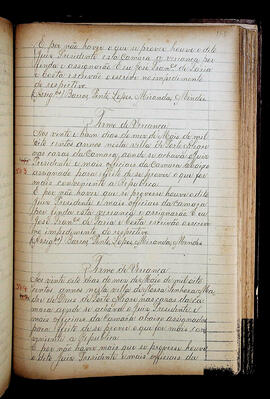 E por não haver o que se prover houve o dito
Juiz Presidente esta Camara se vereança por
finda e assignarão. Eu José Fran.co de Faria
e Costa escrivão o escrevi no impedimento
do respectivo
(Assig.dos) Barros, Pinto, Lopes, Miranda, Mendes
Termo de Vereança
Aos vinte e hum dias do mez de Maio de mil
oito centos annos nesta villa de Porto Alegre
nas casas da Camara, aonde se achava o Juiz
Presidente e mais officiais da Camara abaixo
assignado para effeito de se prover o que for
mais conveniente a Republica
E por não haver que se provesse houve o dito
Juiz Presidente e mais officiaes da Camara
por finda esta vereança e assignarão. E eu
José Fran.co de Faria e Costa escrivão o escrevi
no impedimento do respectivo
(Assig.dos) Barros, Pinto, Lopes, Miranda, Mendes
Termo de Vereança
Aos vinte sete dias do mez de Maio de mil oito
centos annos nesta villa de Nossa Senhora Ma-
dre de Deus de Porto Alegre nas casas da Ca-
mara aonde se achava o Juiz Presidente e
mais officiaes da Camara abaixo assignados
para effeito de se prover o que for mais con-
veniente a Republica
E por não haver mais que se prover houve
o dito Juiz Presidente e mais officiaes da